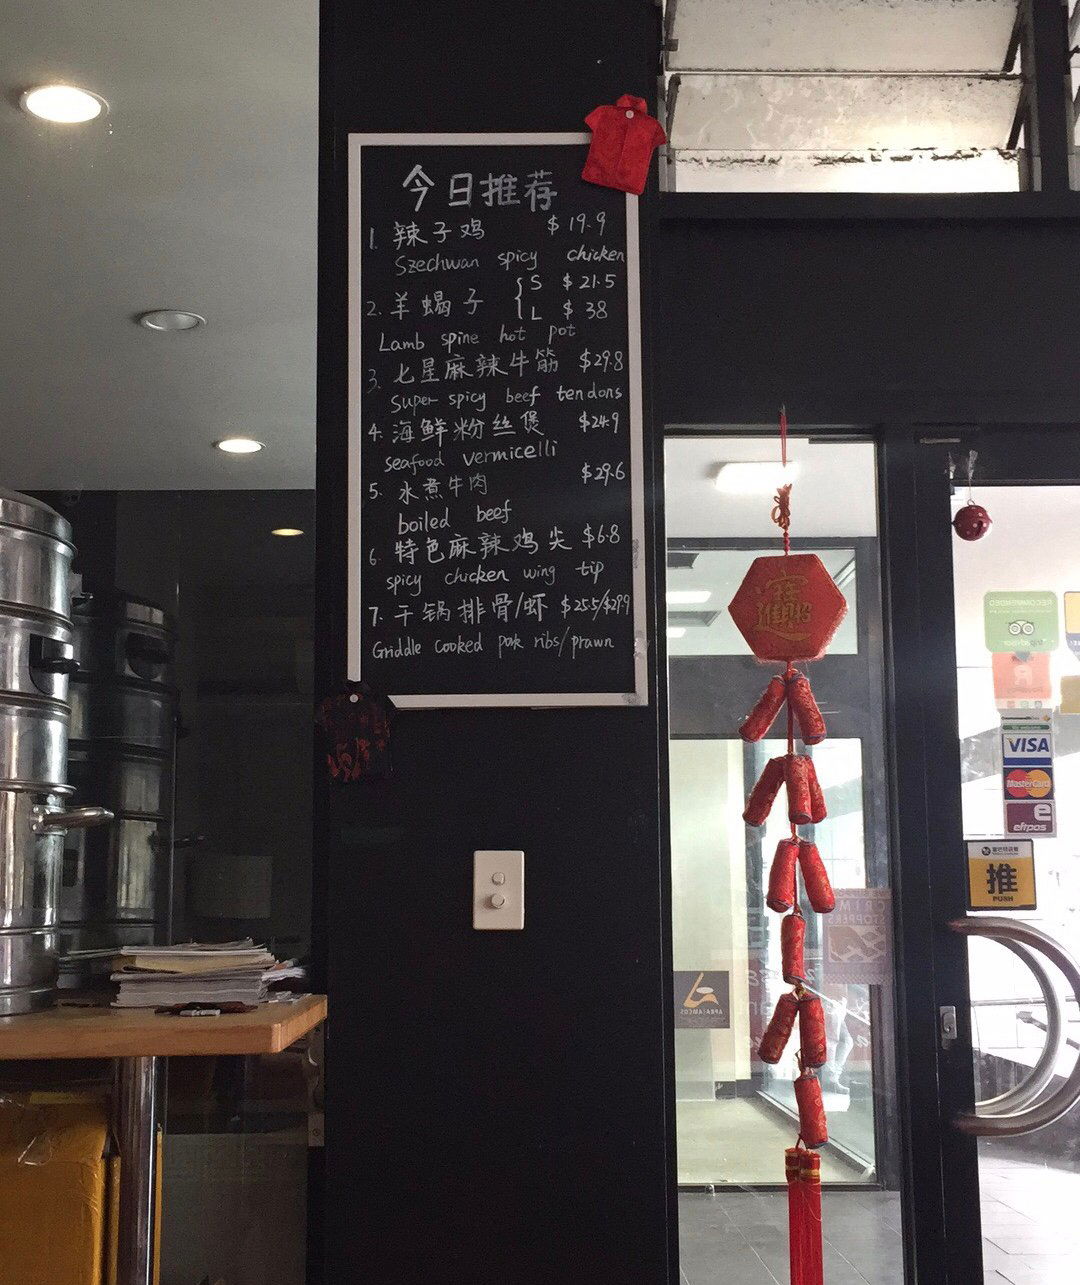 今日推荐
1. 辣子鸡 $19.9
Szechwan spicy chicken
2. 羊蝎子 { S $21.5
L $38
Lamb spine hot pot
3. 七星麻辣牛筋 $29.8
Super spicy beef tendons
4. 海鲜粉丝煲 $24.9
seafood vermicelli
5. 水煮牛肉 $29.6
boiled beef
6. 特色麻辣鸡尖 $6.8
spicy chicken wing tip
7. 干锅排骨/虾 $25.5/$29.9
Griddle cooked pork ribs/prawn
RECOMMENDED
VISA
MasterCard
eftpos
推
PUSH
CRIME
STOPPERS
APRA AMCOS